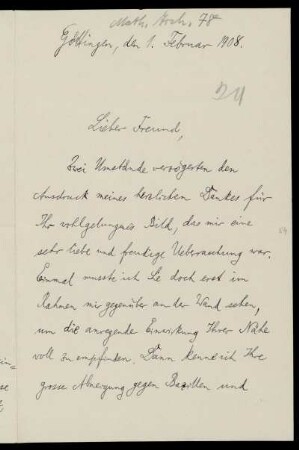 Math. Arch. 78
Göttingen, den 1. Februar 1908.
Lieber Freund,
Zwei Umstände verzögerten den
Ausdruck meines herzlichen Dankes für
Ihr wohlgelungnes Bild, das mir eine
sehr liebe und freudige Ueberraschung war.
Einmal musste ich Sie doch erst im
Rahmen mir gegenüber an der Wand sehen,
um die anregende Einwirkung Ihrer Nähe
voll zu empfinden. Dann kenne ich Ihre
grosse Abneigung gegen Bazillen und